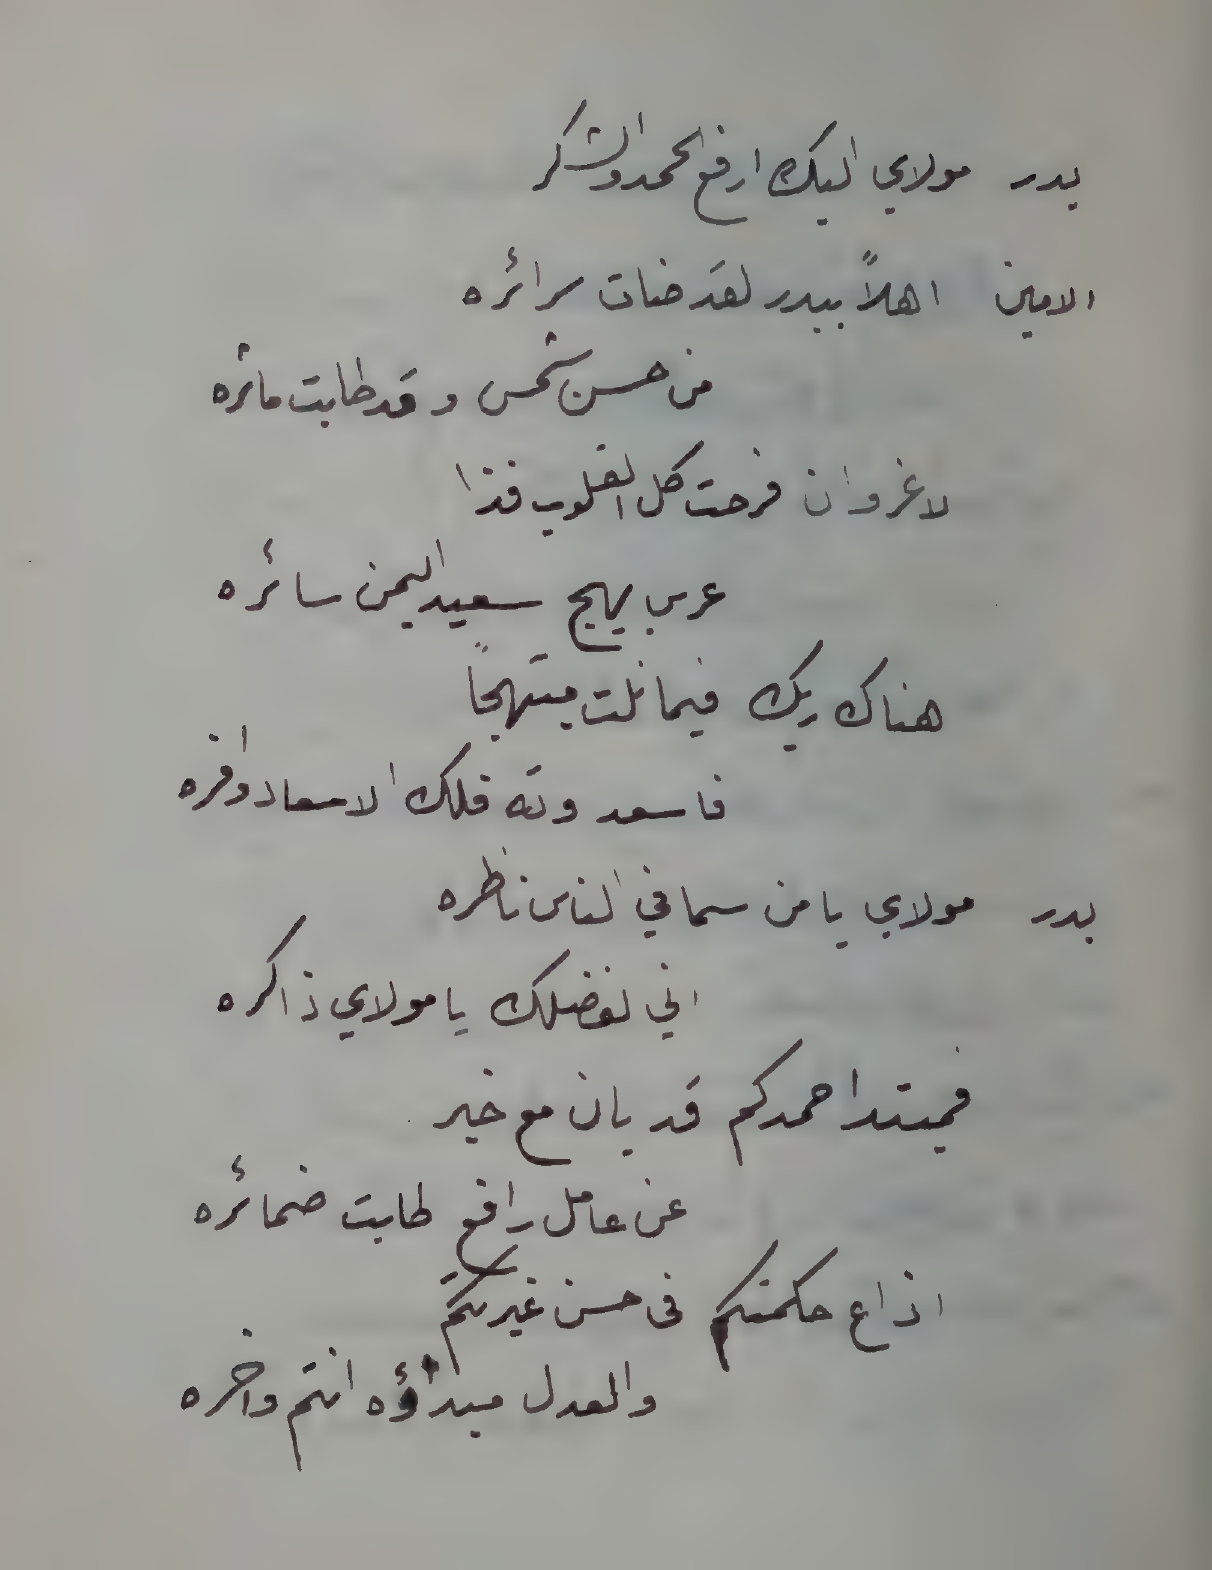 بدر مولاي اليك ارفع الحمد والشكر
الامين اهلاً ببدر لقد ضات سرائره
من حسن شمس وقد طابت مائره
لا غروان فرحت كل القلوب فذا
عرس بهيج سعيد اليمن سائره
هناك ربك فيما نلت مبتهجاً
فاسعد وته فلك الاسعاد وافره
بدر مولاي يا من سما في الناس ناظره
اني لفضلك يا مولاي ذاكره
فمبتدا حمدكم قد بان مع خبر
عن عامل رافع طابت ضمائره
اذاع حكمتكم في حسن غيرتكم
والعدل مبدأؤه انتم واخره